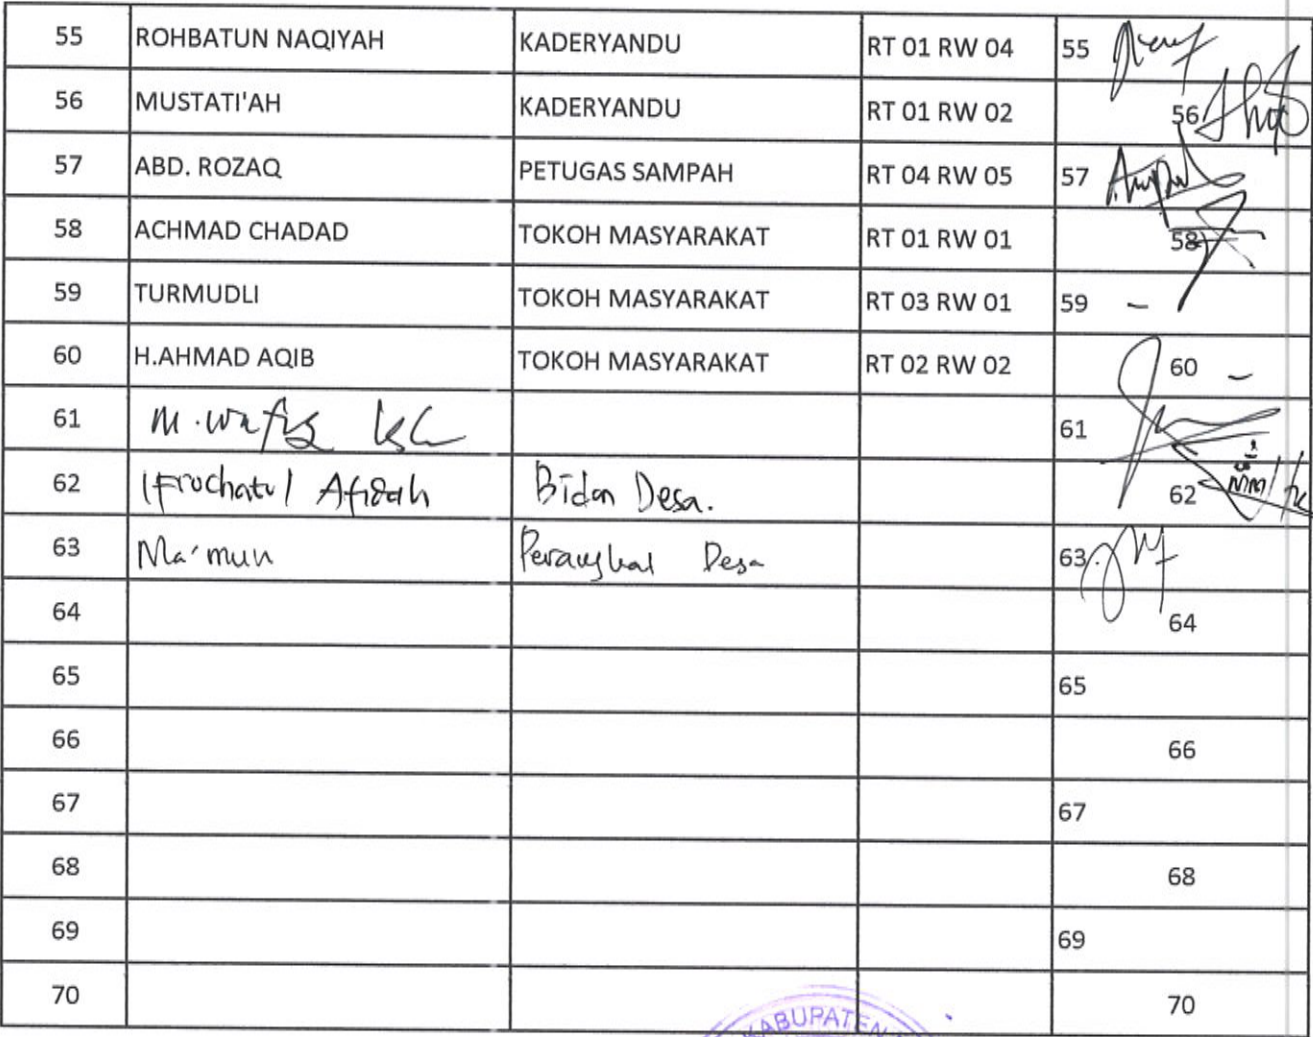 55 ROHBATUN NAQIYAH KADERYANDU RT 01 RW 04 55
56 MUSTATI'AH KADERYANDU RT 01 RW 02 56
57 ABD. ROZAQ PETUGAS SAMPAH RT 04 RW 05 57
58 ACHMAD CHADAD TOKOH MASYARAKAT RT 01 RW 01 58
59 TURMUDLI TOKOH MASYARAKAT RT 03 RW 01 59 -
60 H.AHMAD AQIB TOKOH MASYARAKAT RT 02 RW 02 60 -
61 M. Wafiq 61
62 Ifrochatul Afidah Bidan Desa. 62
63 Ma'mun Perangkat Desa 63
64 64
65 65
66 66
67 67
68 68
69 69
70 70
KABUPATEN